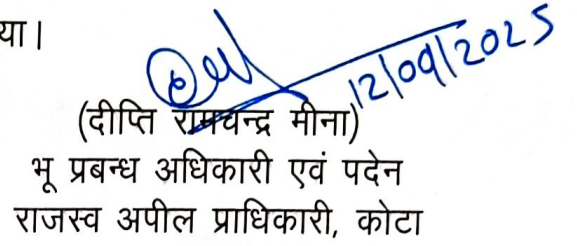 या।
12/09/2025
(दीप्ति रामचन्द्र मीना)
भू प्रबन्ध अधिकारी एवं पदेन
राजस्व अपील प्राधिकारी, कोटा